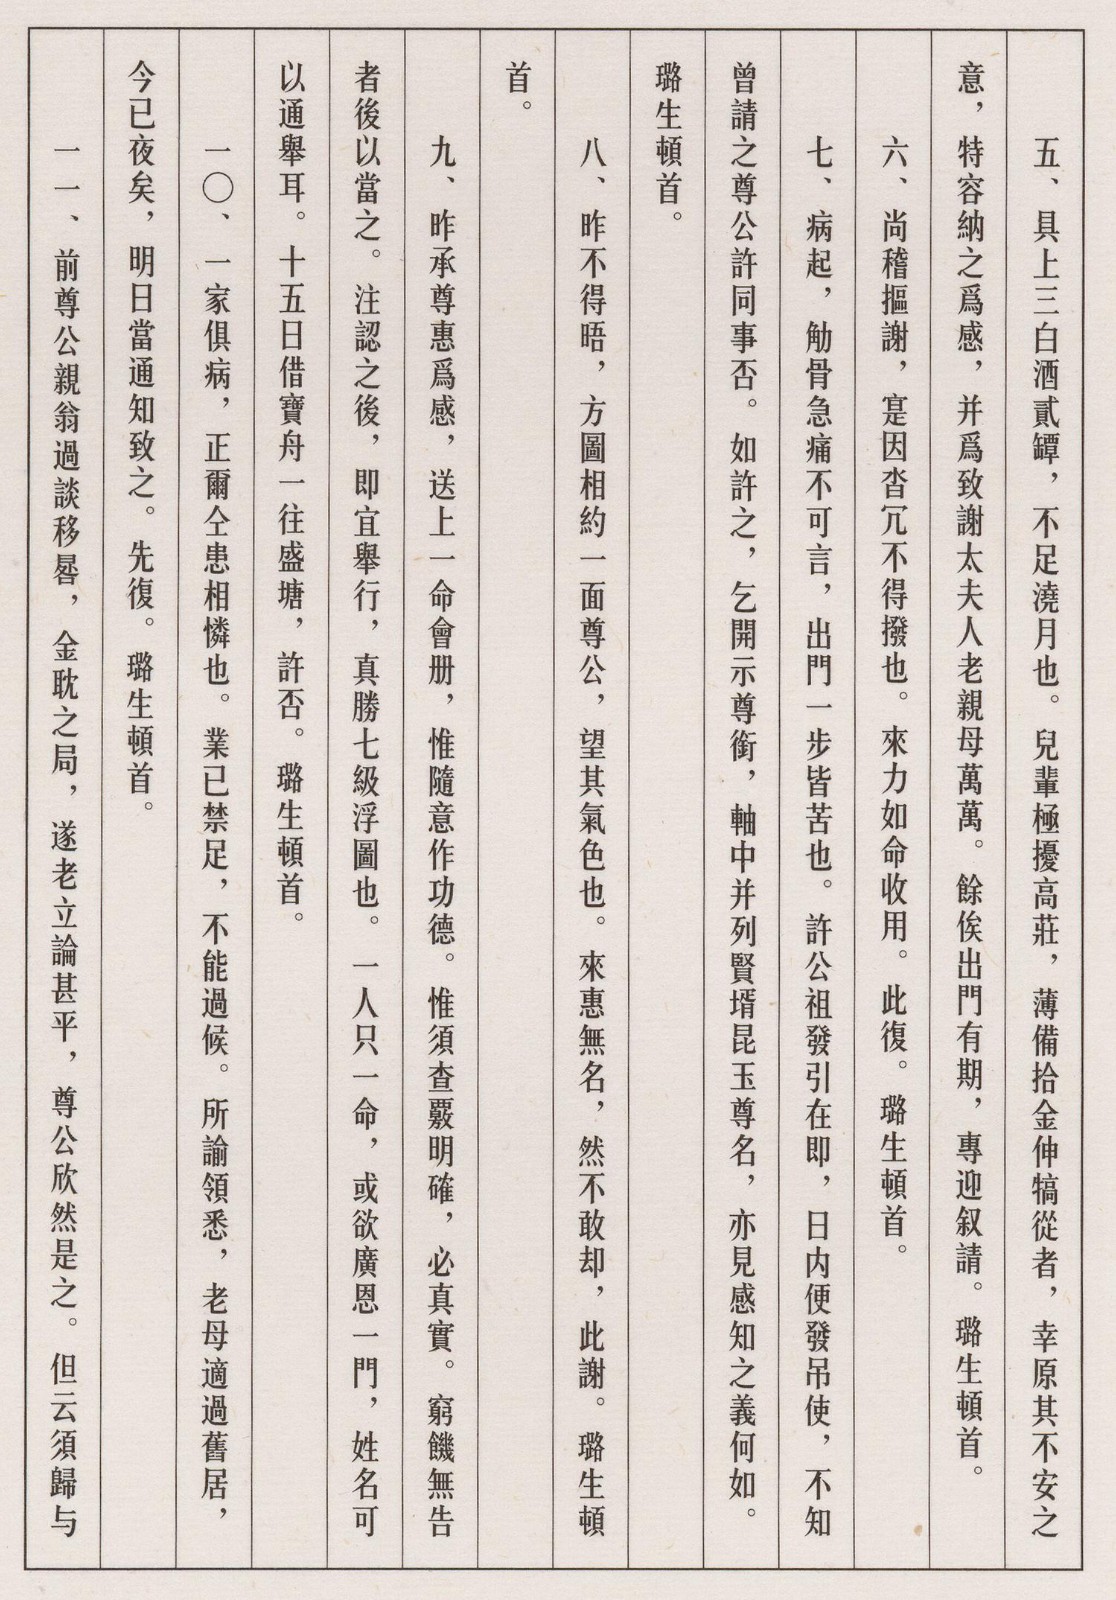 五、具上三白酒貳罈，不足澆月也。兒輩極擾高莊，薄備拾金伸犒從者，幸原其不安之
意，特容納之爲感，并爲致謝太夫人老親母萬萬。餘俟出門有期，專迎叙請。璐生頓首。
六、尚稽摳謝，寔因沓冗不得撥也。來力如命收用。此復。璐生頓首。
七、病起，觔骨急痛不可言，出門一步皆苦也。許公祖發引在即，日内便發吊使，不知
曾請之尊公許同事否。如許之，乞開示尊銜，軸中并列賢壻昆玉尊名，亦見感知之義何如。
璐生頓首。
八、昨不得晤，方圖相約一面尊公，望其氣色也。來惠無名，然不敢却，此謝。璐生頓
首。
九、昨承尊惠爲感，送上一命會册，惟隨意作功德。惟須查覈明確，必真實。窮饑無告
者後以當之。注認之後，即宜舉行，真勝七級浮圖也。一人只一命，或欲廣恩一門，姓名可
以通舉耳。十五日借寶舟一往盛塘，許否。璐生頓首。
一〇、一家俱病，正爾仝患相憐也。業已禁足，不能過候。所諭領悉，老母適過舊居，
今已夜矣，明日當通知致之。先復。璐生頓首。
一一、前尊公親翁過談移晷，金耽之局，遂老立論甚平，尊公欣然是之。但云須歸与